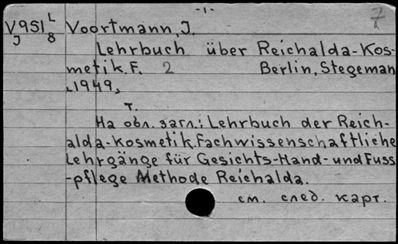 -1-
7
V951 L/8 Voortmann, J.
J
Lehrbuch über Reichalda-Kos-
metik. F. 2 Berlin, Stegeman
,1949,
т.
На обл. загл.: Lehrbuch der Reich-
alda-Kosmetik. Fachwissenschaftliche
Lehrgänge für Gesichts-Hand- und Fuss
-pflege Methode Reichalda.
см. след. карт.